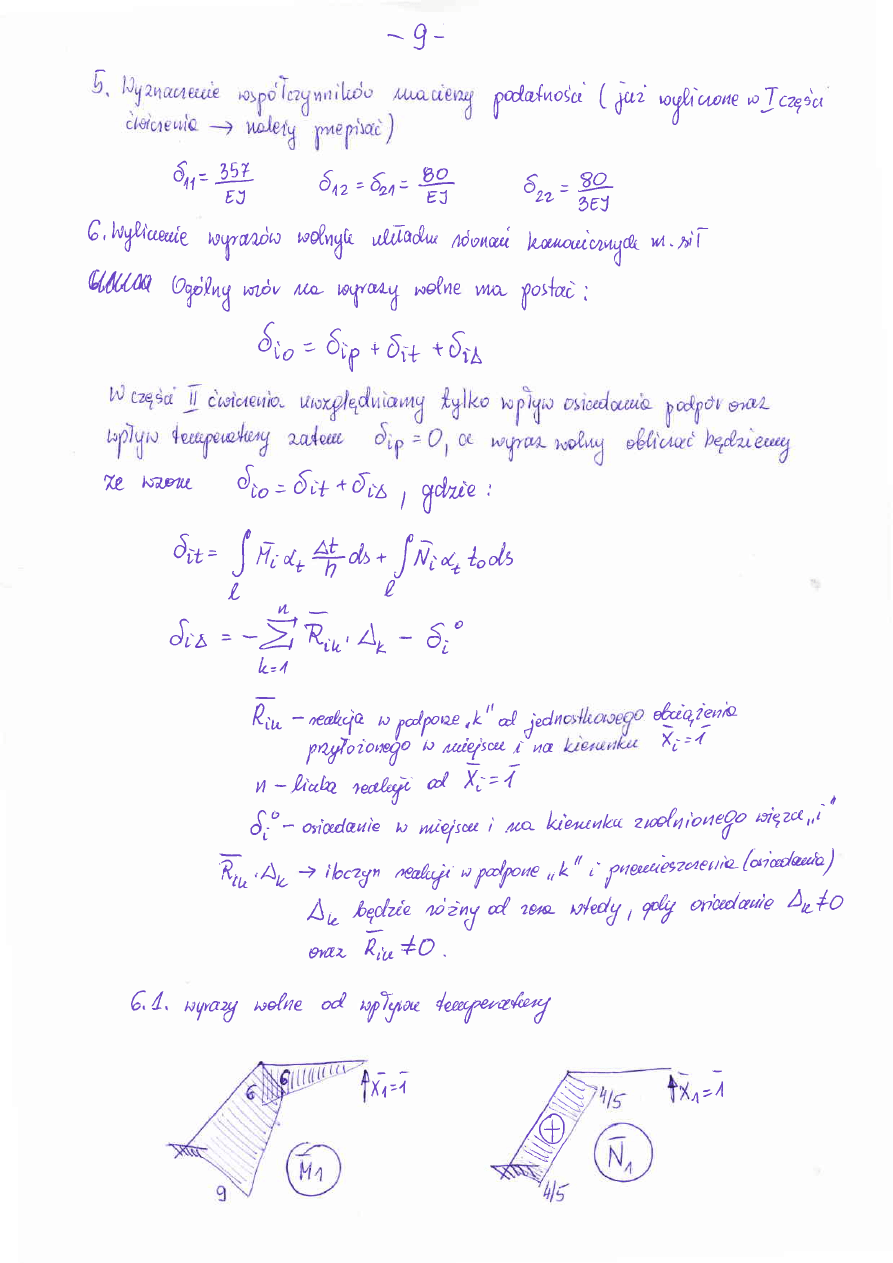 - 9 -
5. Wyznaczenie współczynników macierzy podatności ( już wyliczone w I części
ćwiczenia → należy przepisać )
δ11 = 357/EJ   δ12 = δ21 = 80/EJ   δ22 = 80/3EJ
6. Wyliczenie wyrazów wolnych układu równań kanonicznych m. sił
Ogólny wzór na wyrazy wolne ma postać :
δio = δip + δit + δiΔ
W części II ćwiczenia uwzględniamy tylko wpływ osiadania podpór oraz
wpływ temperatury zatem δip = 0, a wyraz wolny obliczać będziemy
ze wzoru δio = δit + δiΔ , gdzie :
δit = ∫l M̄i αt Δt/h ds + ∫l N̄i αt to ds
δiΔ = - Σ(k=1)^n R̄ik · Δk - δi°
R̄ik - reakcja w podporze „k" od jednostkowego obciążenia
przyłożonego w miejscu i na kierunku X̄i = 1̄
n - liczba reakcji od X̄i = 1̄
δi° - osiadanie w miejscu i na kierunku zwolnionego więzca „i"
R̄ik · Δk → iloczyn reakcji w podporze „k" i przemieszczenia (osiadania)
Δk będzie różny od zera wtedy, gdy osiadanie Δk ≠ 0
oraz R̄ik ≠ 0 .
6.1. wyrazy wolne od wpływu temperatury
6 6 X̄1 = 1̄ 9 M̄1
4/5 X̄1 = 1̄ + 4/5 N̄1